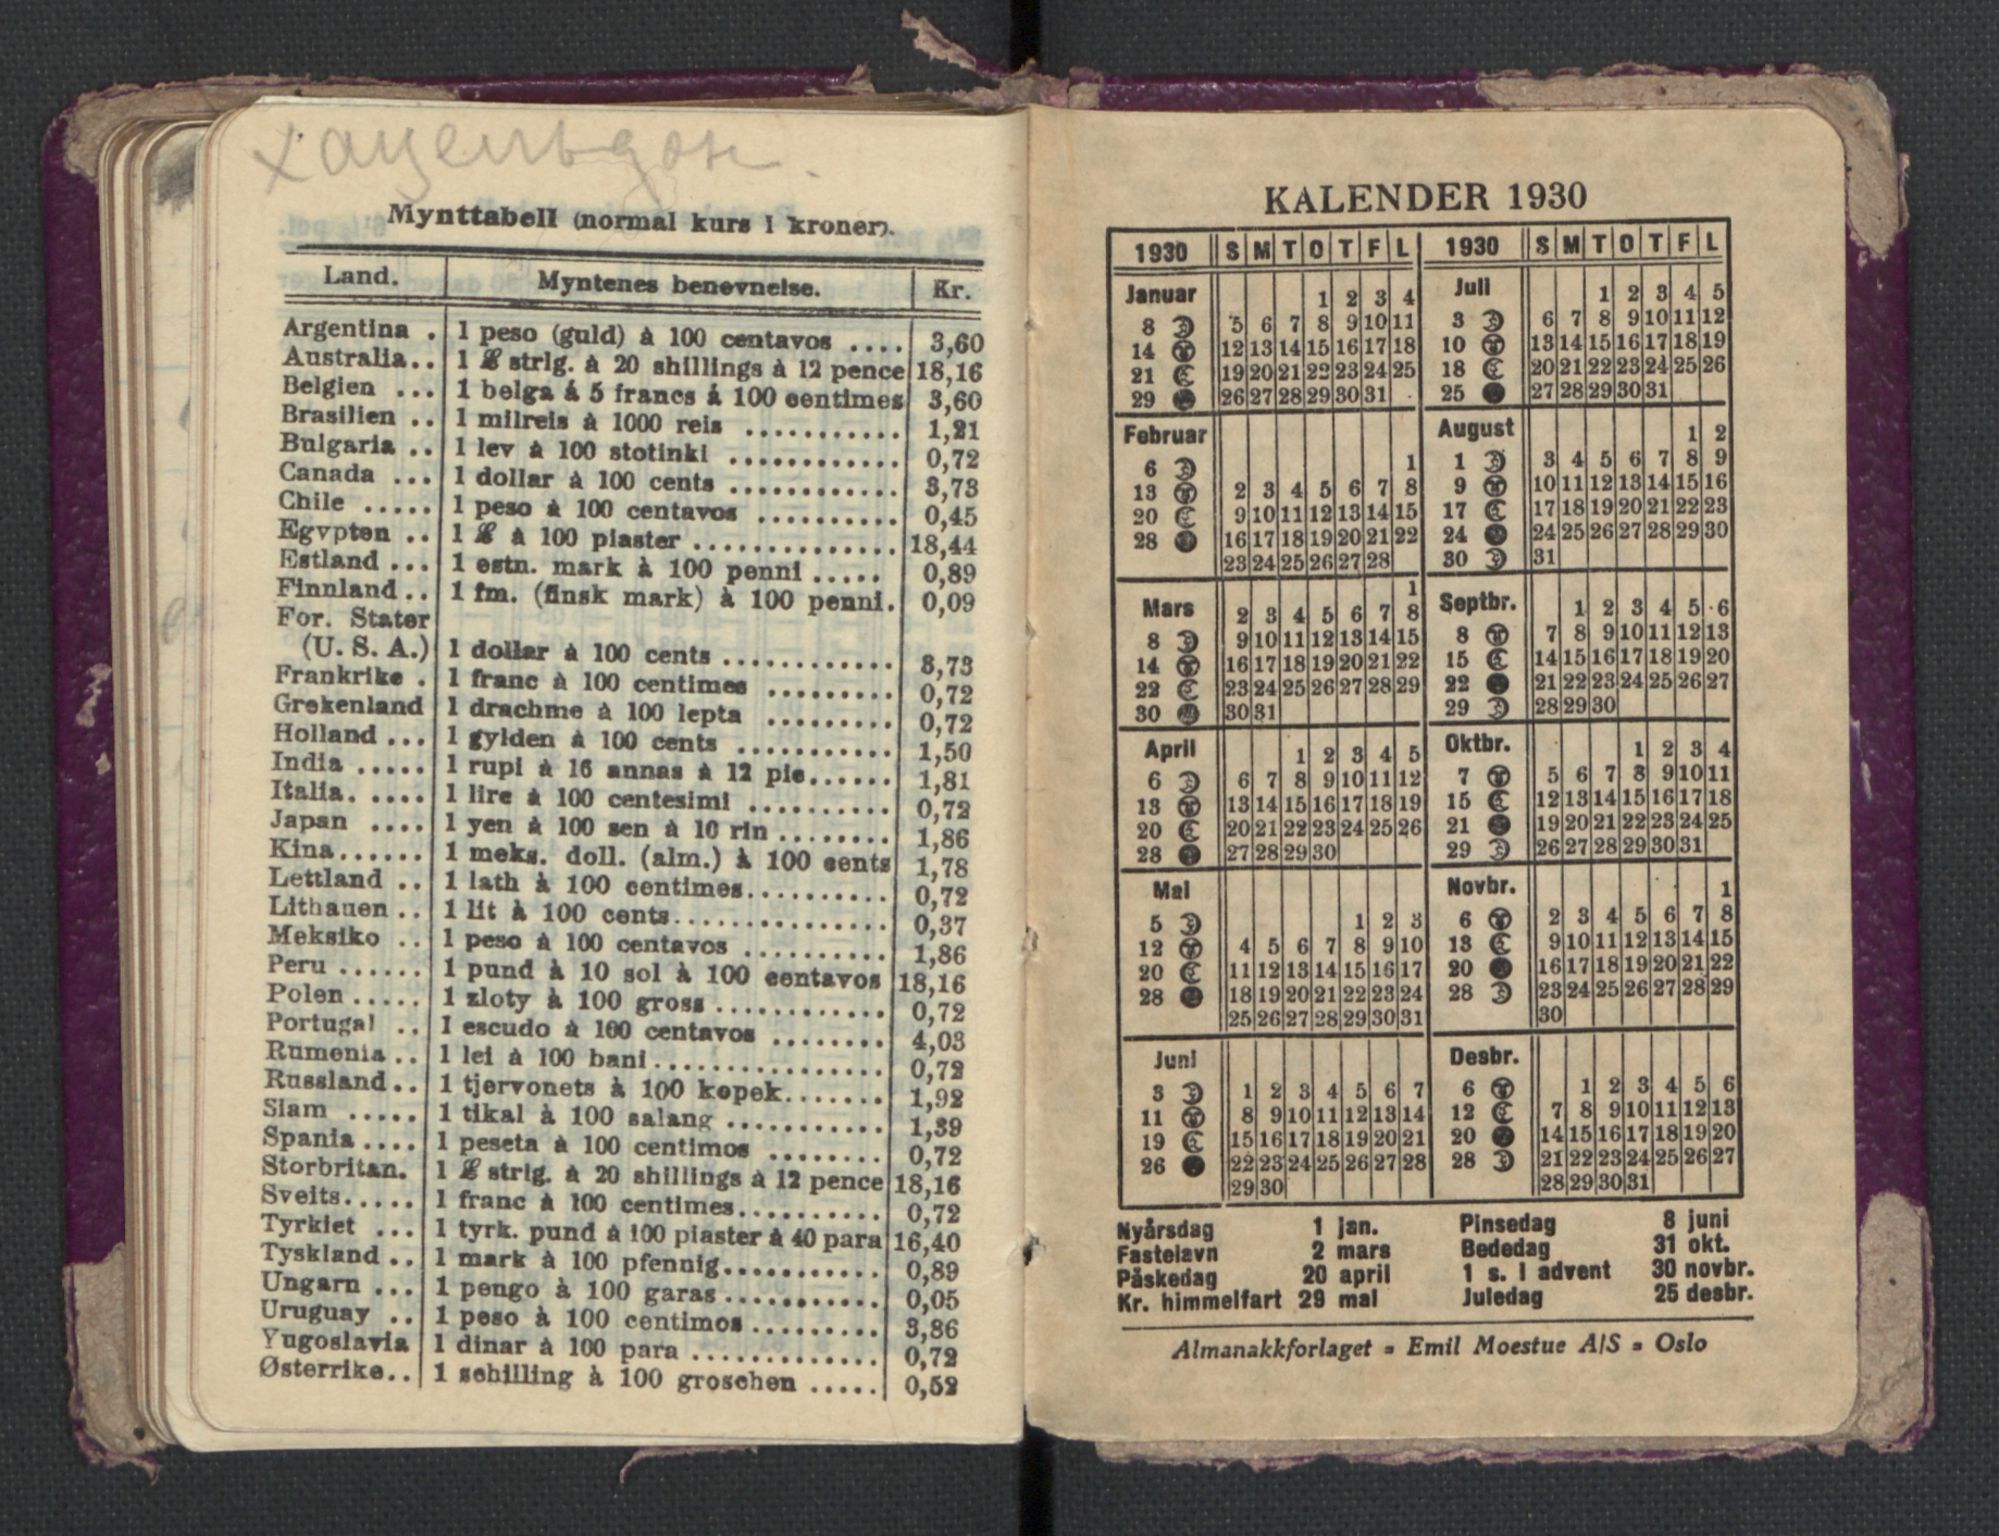 Mynttabell (normal kurs i kroner).
Land. Myntenes benevnelse. Kr.
Argentina . 1 peso (guld) à 100 centavos .... 3,60
Australia.. 1 £ strlg. à 20 shillings à 12 pence 18,16
Belgien ... 1 belga á 5 francs á 100 centimes 3,60
Brasilien .. 1 milreis à 1000 reis ........... 1,21
Bulgaria .. 1 lev à 100 stotinki ............ 0,72
Canada ... 1 dollar à 100 cents ............ 3,73
Chile ..... 1 peso à 100 centavos .......... 0,45
Egypten .. 1 £ à 100 piaster .............. 18,44
Estland ... 1 estn. mark à 100 penni ..... 0,89
Finnland.. 1 fm. (finsk mark) à 100 penni. 0,09
For. Stater
(U. S. A.) 1 dollar à 100 cents ............ 3,73
Frankrike . 1 franc à 100 centimes ......... 0,72
Grekenland 1 drachme à 100 lepta ......... 0,72
Holland ... 1 gylden à 100 cents ........... 1,50
India ..... 1 rupi à 16 annas à 12 pie...... 1,81
Italia. .... 1 lire à 100 centesimi .......... 0,72
Japan .... 1 yen à 100 sen à 10 rin ........ 1,86
Kina...... 1 meks. doll. (alm.) à 100 cents 1,78
Lettland .. 1 lath à 100 centimes.......... 0,72
Lithauen .. 1 lit à 100 cents................ 0,37
Meksiko .. 1 peso à 100 centavos .......... 1,86
Peru ...... 1 pund à 10 sol à 100 centavos 18,16
Polen ..... 1 zloty à 100 gross ............. 0,72
Portugal .. 1 escudo à 100 centavos ........ 4,03
Rumenia .. 1 lei à 100 bani................. 0,72
Russland.. 1 tjervonets à 100 kopek....... 1,92
Siam ..... 1 tikal à 100 salang ............ 1,39
Spania .... 1 peseta à 100 centimos ........ 0,72
Storbritan. 1 £ strlg. à 20 shillings à 12 pence 18,16
Sveits..... 1 franc à 100 centimes.......... 0,72
Tyrkiet ... 1 tyrk. pund à 100 piaster à 40 para 16,40
Tyskland .. 1 mark à 100 pfennig........... 0,89
Ungarn ... 1 pengo à 100 garas ........... 0,05
Uruguay .. 1 peso à 100 centimos ......... 3,86
Yugoslavia 1 dinar à 100 para ............. 0,72
Østerrike.. 1 schilling à 100 groschen ..... 0,52
KALENDER 1930
1930 S M T O T F L
Januar 1 2 3 4
8 5 6 7 8 9 10 11
14 12 13 14 15 16 17 18
21 19 20 21 22 23 24 25
29 26 27 28 29 30 31
Februar
6 1
13 2 3 4 5 6 7 8
20 9 10 11 12 13 14 15
28 16 17 18 19 20 21 22
23 24 25 26 27 28
1
Mars 2 3 4 5 6 7 8
8 9 10 11 12 13 14 15
14 16 17 18 19 20 21 22
22 23 24 25 26 27 28 29
30 30 31
April 1 2 3 4 5
6 6 7 8 9 10 11 12
13 13 14 15 16 17 18 19
20 20 21 22 23 24 25 26
28 27 28 29 30
Mai
5 1 2 3
12 4 5 6 7 8 9 10
20 11 12 13 14 15 16 17
28 18 19 20 21 22 23 24
25 26 27 28 29 30 31
Juni
3 1 2 3 4 5 6 7
11 8 9 10 11 12 13 14
19 15 16 17 18 19 20 21
26 22 23 24 25 26 27 28
29 30
1930 S M T O T F L
Juli 1 2 3 4 5
3 6 7 8 9 10 11 12
10 13 14 15 16 17 18 19
18 20 21 22 23 24 25 26
25 27 28 29 30 31
August 1 2
1 3 4 5 6 7 8 9
9 10 11 12 13 14 15 16
17 17 18 19 20 21 22 23
24 24 25 26 27 28 29 30
30 31
Septbr. 1 2 3 4 5 6
8 7 8 9 10 11 12 13
15 14 15 16 17 18 19 20
22 21 22 23 24 25 26 27
29 28 29 30
Oktbr. 1 2 3 4
7 5 6 7 8 9 10 11
15 12 13 14 15 16 17 18
21 19 20 21 22 23 24 25
29 26 27 28 29 30 31
Novbr. 1
6 2 3 4 5 6 7 8
13 9 10 11 12 13 14 15
20 16 17 18 19 20 21 22
28 23 24 25 26 27 28 29
30
Desbr.
6 1 2 3 4 5 6
12 7 8 9 10 11 12 13
20 14 15 16 17 18 19 20
28 21 22 23 24 25 26 27
28 29 30 31
Nyårsdag 1 jan. Pinsedag 8 juni
Fastelavn 2 mars Bededag 31 okt.
Påskedag 20 april 1 s. i advent 30 novbr.
Kr. himmelfart 29 mai Juledag 25 desbr.
Almanakkforlaget - Emil Moestue A/S - Oslo